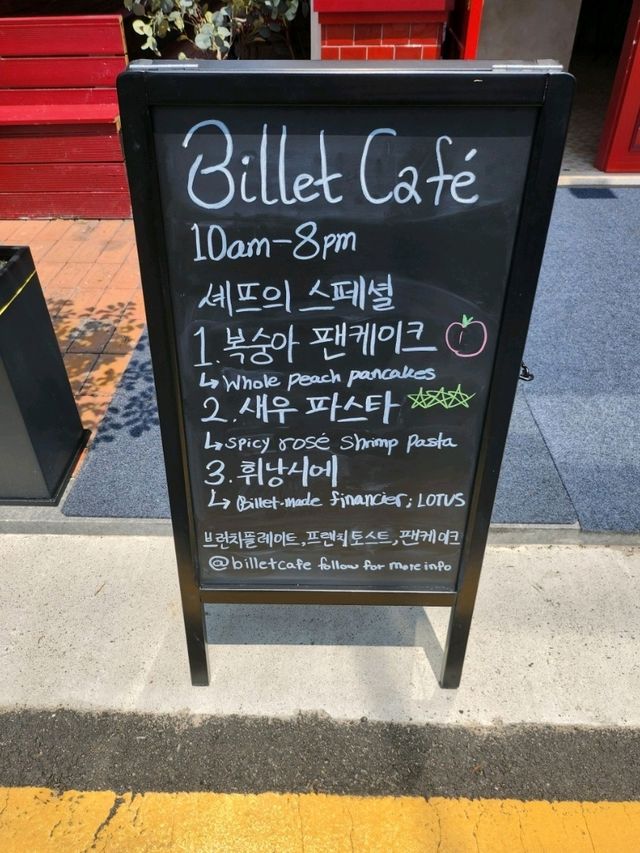 Billet Café
10am-8pm
셰프의 스페셜
1. 복숭아 팬케이크
↳ Whole peach pancakes
2. 새우 파스타
↳ spicy rosé shrimp pasta
3. 휘낭시에
↳ Billet-made financier; LOTUS
브런치플레이트, 프렌치토스트, 팬케이크
@billetcafe follow for more info